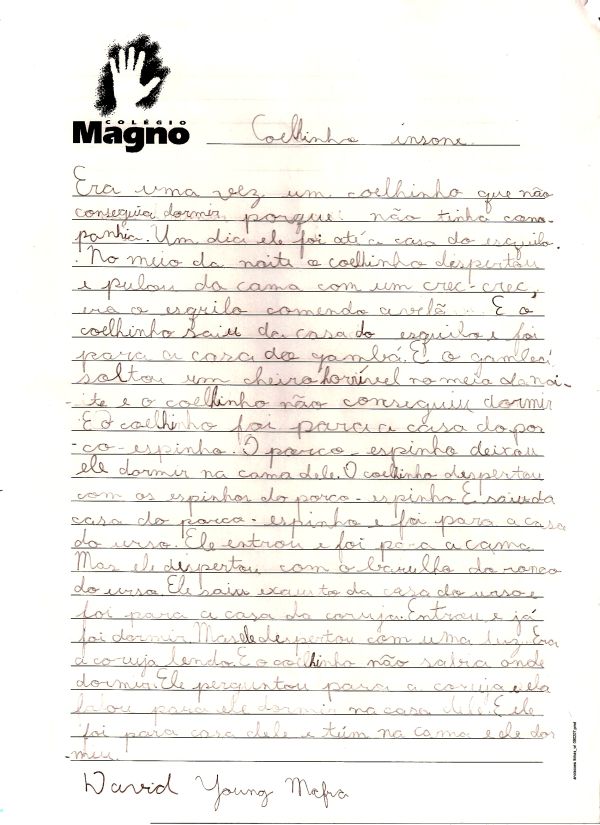 COLÉGIO
Magno
Coelhinho insone
Era uma vez um coelhinho que não
conseguia dormir, porque não tinha com-
panhia. Um dia ele foi até a casa do esquilo.
No meio da noite o coelhinho despertou
e pulou da cama com um crec-crec,
era o esqrilo comendo avelã... E o
coelhinho saiu da casa do esquilo e foi
para a casa do gambá. E o gambá
soltou um cheiro horrível no meio da noi-
-ite e o coelhinho não conseguiu dormir
E o coelhinho foi para a casa do por
-co-espinho. O porco-espinho deixou
ele dormir na cama dele. O coelhinho despertou
com os espinhos do porco-espinho E saiu da
casa do porco-espinho e foi para a casa
do urso. Ele entrou e foi para a cama
Mas ele despertou com o barulho do ronco
do urso. Ele saiu exausto da casa do urso e
foi para a casa da coruja. Entrou e já
foi dormir. Mas ele despertou com uma luz. Era
a coruja lendo. E o coelhinho não sabia onde
dormir. Ele perguntou para a coruja e ela
falou para ele dormir na casa dele. E ele
foi para casa dele e tum na cama e ele dor
-miu.
David Young Mafra